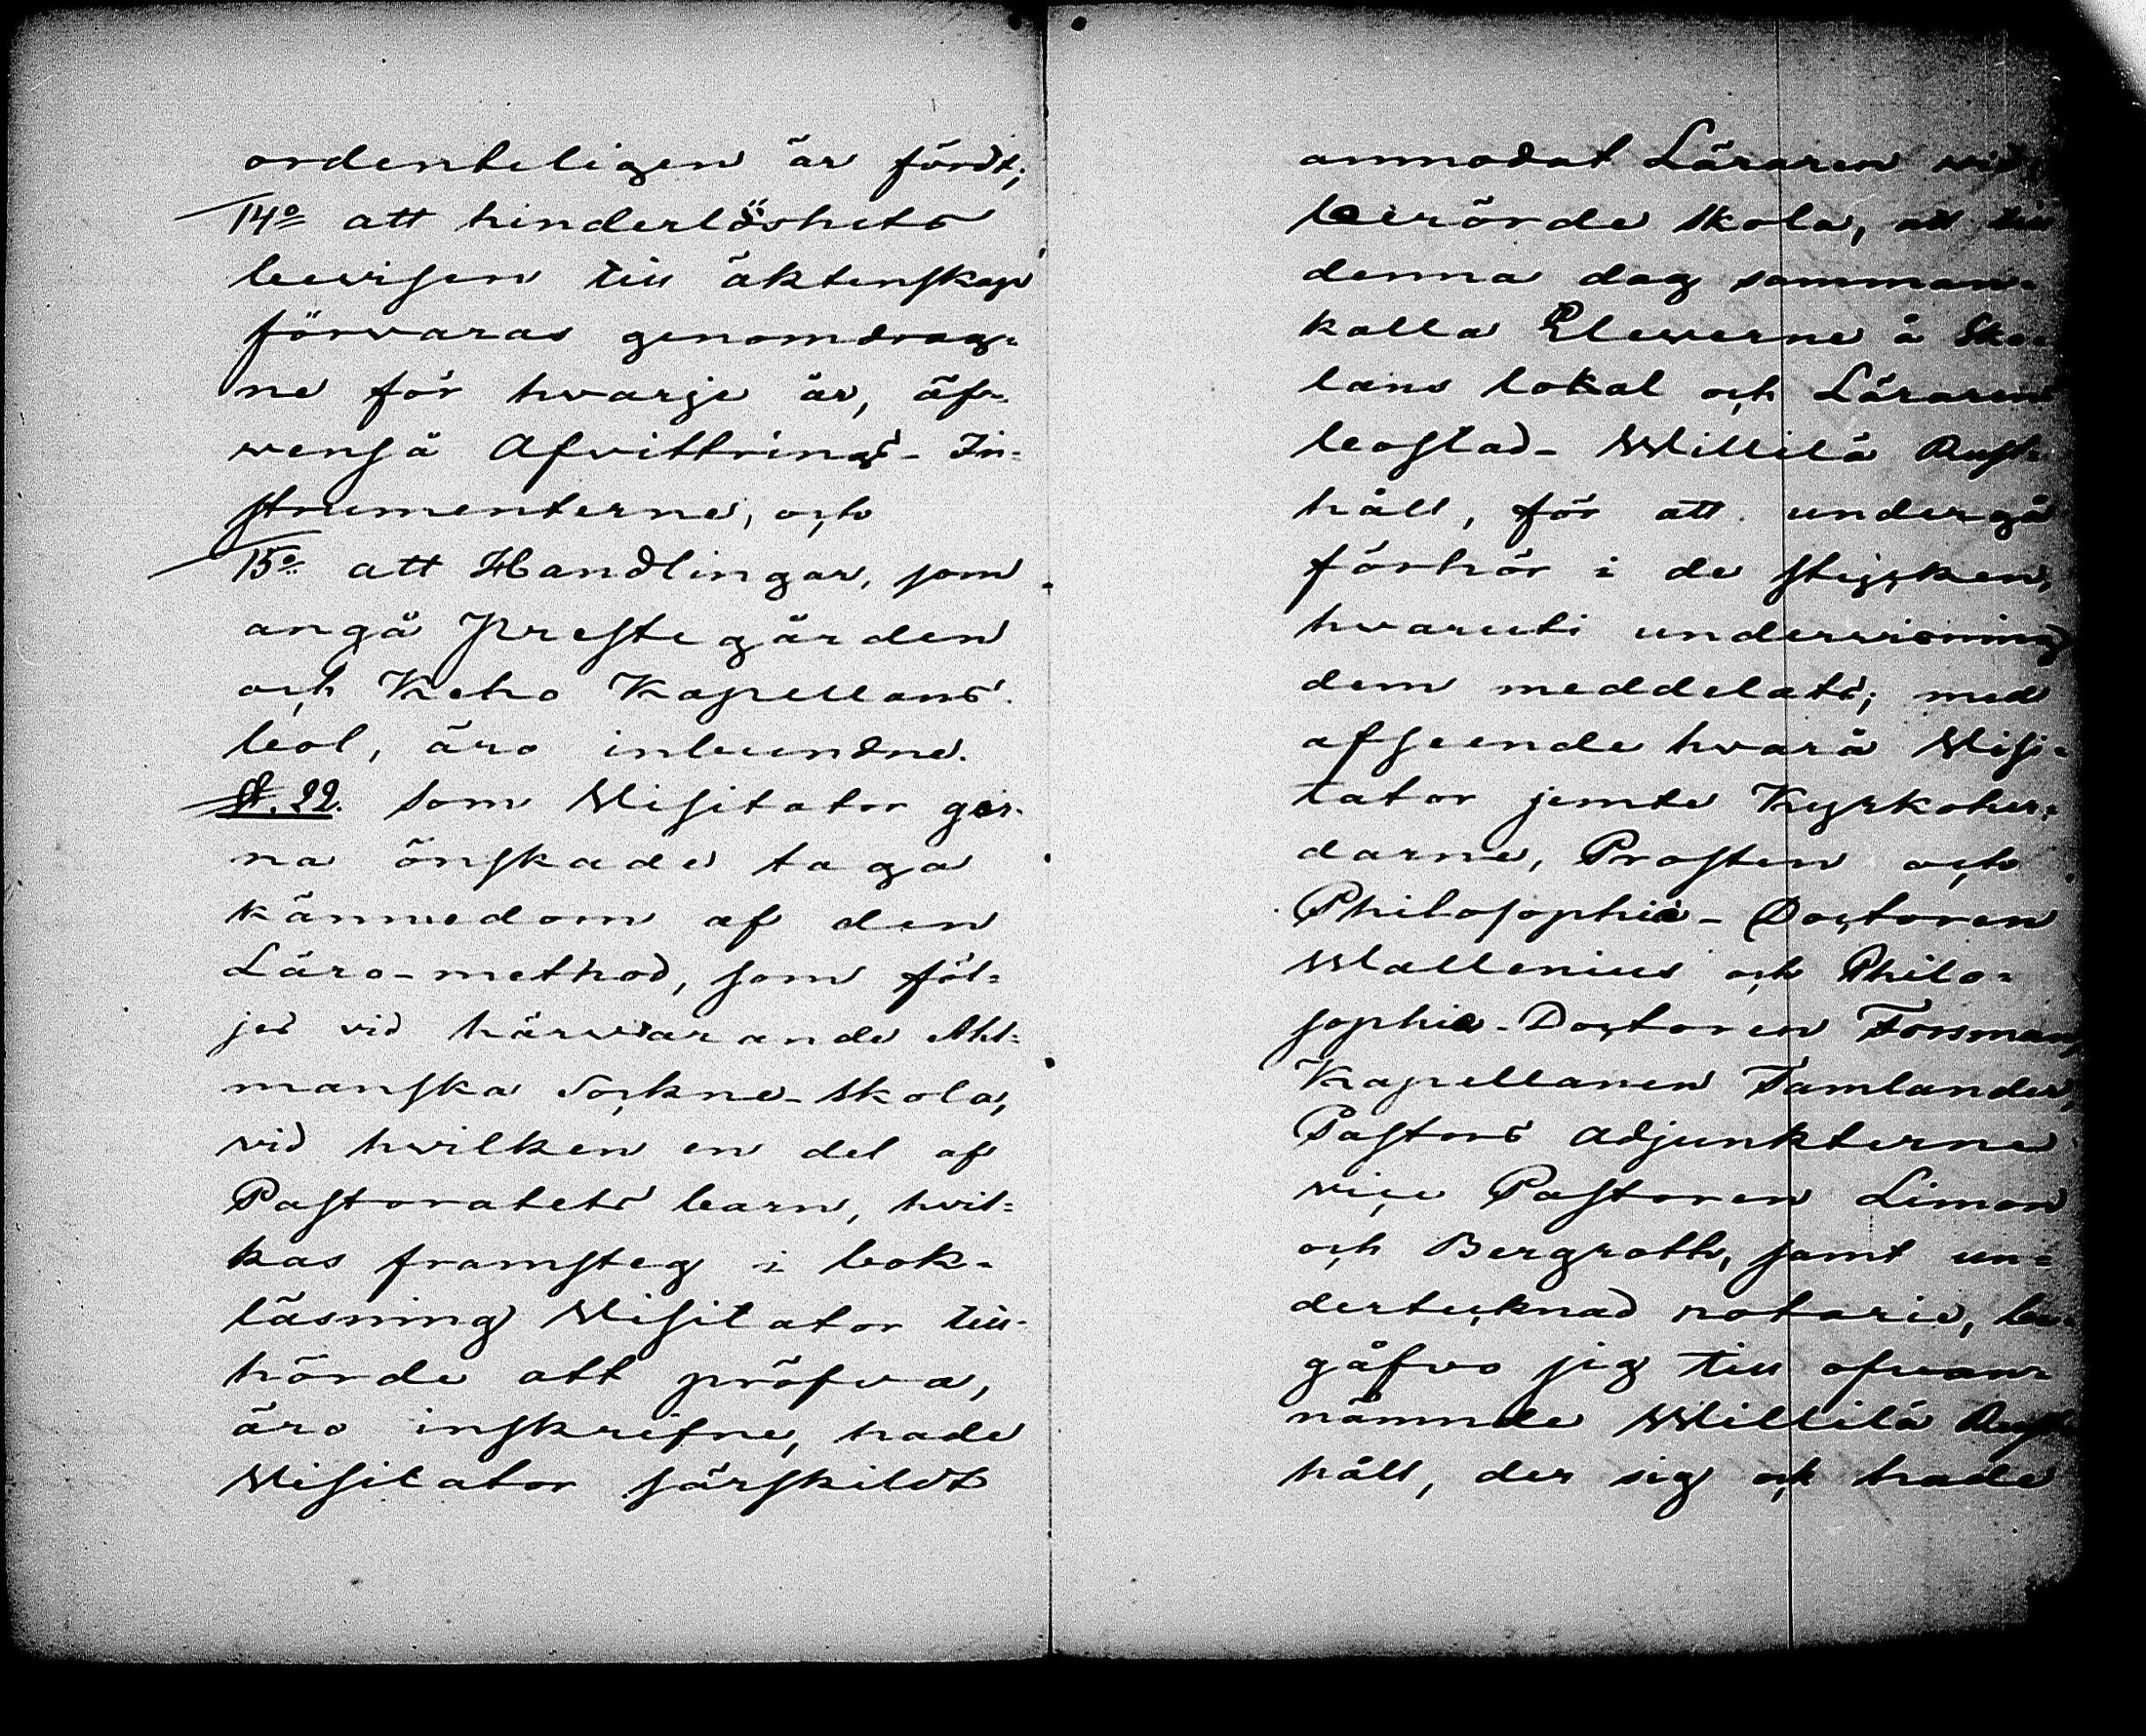 ordenteligen är fördt;
14o att hinderlöshets
bevisen till äktenskap
förvaras genomdrag=
ne för hvarje år, äf-
venså Afvittrings-In=
strumenterne, och
15o att Handlingar, som
angå Prestegården
och Keho Kapellans
bol, äro inbundne.
§. 22. Som Visitator ger-
na önskade taga
kännedom af den
Läro-method, som föl=
jes vid härvarande Ahl=
manska Sockne-Skola,
vid hvilken en del af
Pastoratets barn, hvil=
kas framsteg i bok-
läsning Visitator till-
hörde att pröfva,
äro inskrifne, hade
Visitator särskildt
anmodat Läraren vid
berörde Skola, att till
denna dag samman-
kalla Eleverne å Sko-
lans lokal och Lärarens
bostad - Willilä Rust-
håll, för att undergå
förhör i de stycken,
hvaruti undervisning
dem meddelats; med
afseende hvarå Visi-
tator jemte Kyrkoher-
darne, Prosten och
Philosophiæ-Doctoren
Wallenius och Philo=
sophiæ-Doctoren Forsman,
Kapellanen Tamlander,
Pastors adjunkterne
vice Pastoren Limon
och Bergroth, samt un=
dertecknad notarie, be-
gåfvo sig till ofvan-
nämnde Willilä Rust-
håll, der sig ock hade